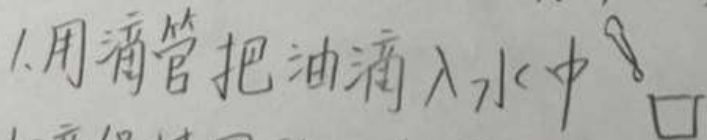 1.用滴管把油滴入水中